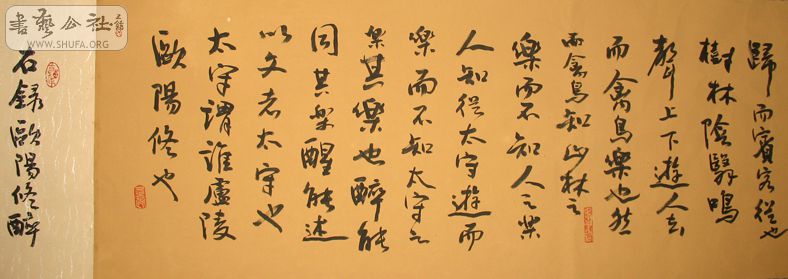 歸而賓客從也
樹林陰翳鳴
聲上下遊人去
而禽鳥樂也然
而禽鳥知山林之
樂而不知人之樂
人知從太守遊而
樂而不知太守之
樂其樂也醉能
同其樂醒能述
以文者太守也
太守謂誰廬陵
歐陽修也
右錄歐陽修醉
書藝公社
WWW.SHUFA.ORG